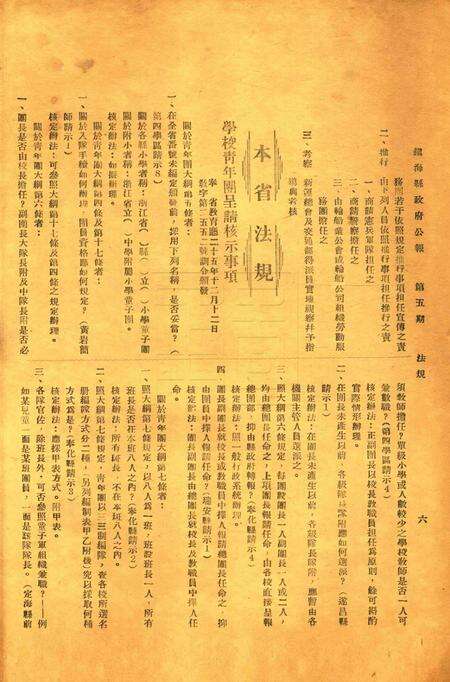 鎮海縣政府公報　第五期　法規
六
務團若干依照規定推行事項担任宣傳之責
二、推行　由下列人員依照推行事項担任推行之責
一、商請憲兵軍隊担任之
二、商請警察担任之
三、由輪船業公會或輪船公司組織勞動服
務團擔任之
三、考察　新運總會及交通部得派員實地視察幷予指
導與考核
本省法規
學校青年團呈請核示事項
奉　省教育廳二十五年十二月十二日
教字第二五五二號訓令頒發
一、在全省番號未編定頒發前，採用下列名稱，是否妥當？（
第四學區請示8）
關於各縣小學者稱：浙江省（　）縣（　）立（　）小學童子團
關於附小者稱：浙江省立（　）中學附屬小學童子團。
核定辦法：如擬辦理。
關於青年團大綱第四條及第十七條者：
一、關於入團隊手續如何辦理，團員資格應如何規定？（黃岩簡
師請示1）
核定辦法：可參照大綱第十七條及第四條之規定辦理。
關於青年團大綱第六條者：
一、團長是否由校長擔任？副團長大隊長附及中隊長附是否必
須教師擔任？單級小學或人數較少之學校教師是否一人可
兼數職？（第四學區請示4）
核定辦法：正副團長以校長教職員担任爲原則，餘可酌酌
實際情形辦理。
二、在團長未產生以前，各級隊長隊附應如何選派？（遂昌縣
請示1）
核定辦法：在團長未產生以前，各級隊長隊附，應暫由各
機關主管人員選派之。
三、照大綱第六條規定，每團設團長一人副團長一人或二人，
均由總團長任命之，上項團長報請任命，由各校直接呈報
總團部，抑由縣政府轉報？（奉化縣請示4）
核定辦法：照一般行政系統辦理。
四、團長副團長就校長或教職員中擇人報請總團長任命之，抑
由團員中擇人報請任命？（瑞安縣請示1）
核定辦法：團長副團長由總團長就校長及教職員中擇人任
命。
關於青年團大綱第七條者：
一、照大綱第七條規定，以八人爲一班，班設班長一人，所有
班長是否在本班八人之內？（奉化縣請示2）
核定辦法：所有班長，不在本班八人之內。
二、照大綱第七條規定，青年團以三三制編隊，查各校所選名
册編隊方式分二種，（另列編制表甲乙附後）究以採取何種
方式爲是？（奉化縣請示3）
核定辦法：應採甲表方式。附甲表。
三、各隊官佐，除班長外，可否參照童子軍組織兼職？——例
如某兒童一面是某班團員，一面是該隊隊長。（定海縣前